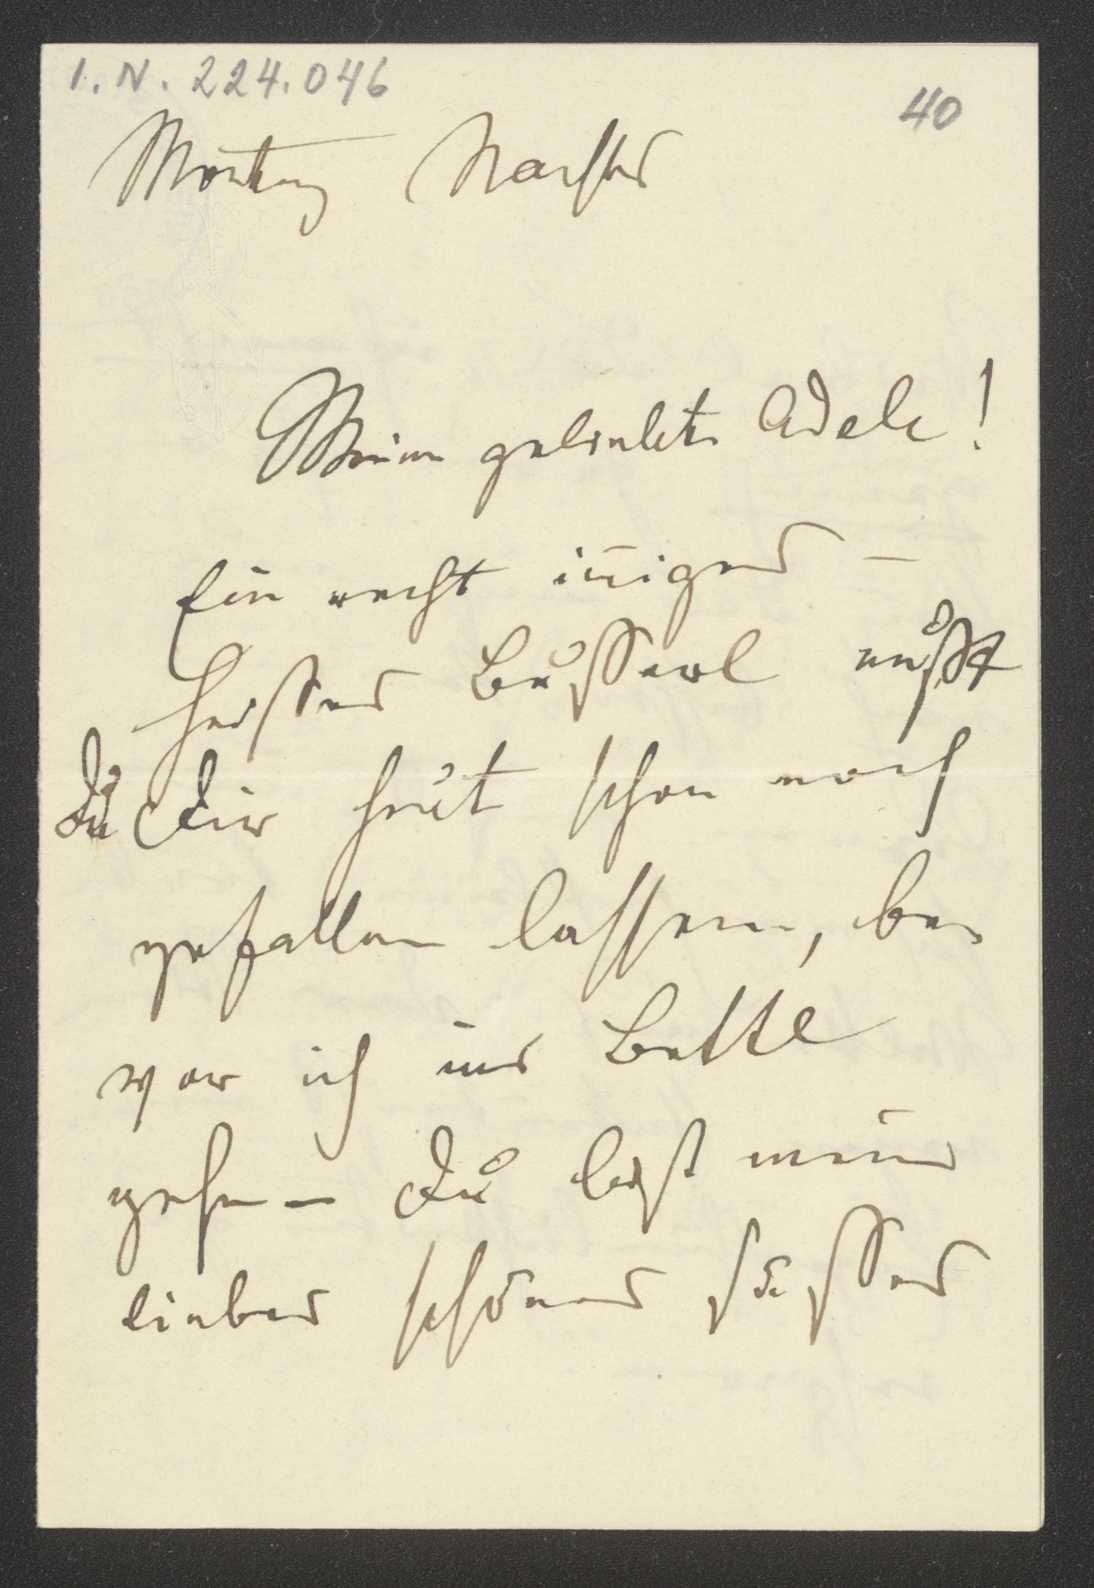 I. N. 224.046
40
Montag Nachts
Meine geliebte Adele!
Ein recht iñiges –
heißes Bußerl mußt
Du Dir heut schon noch
gefallen lassen, be
vor ich ins Bette
gehe – Du bist mein
liebes schönes süßes